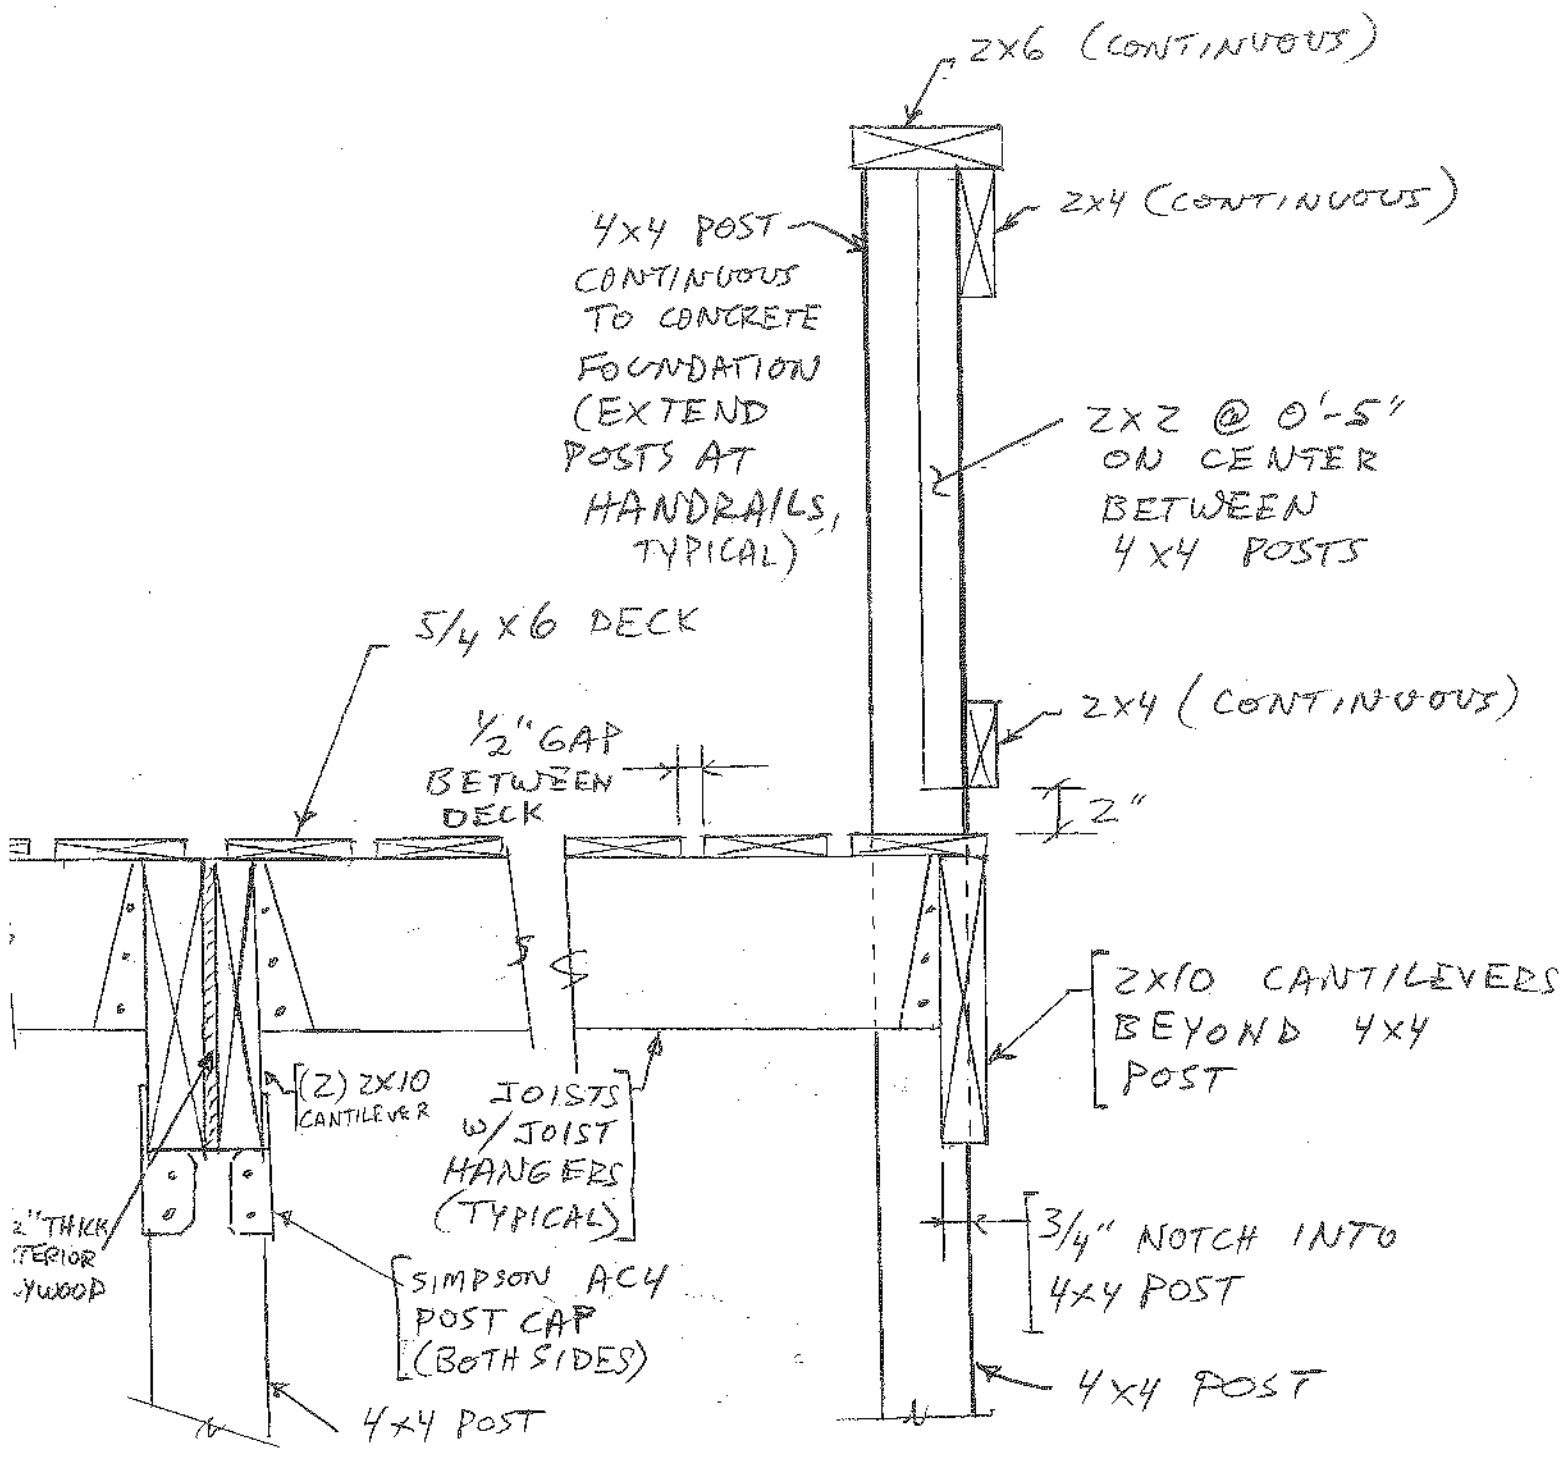 2X6 (CONTINUOUS)
2X4 (CONTINUOUS)
4X4 POST
CONTINUOUS
TO CONCRETE
FOUNDATION
(EXTEND
POSTS AT
HANDRAILS,
TYPICAL)
2X2 @ 0'-5"
ON CENTER
BETWEEN
4X4 POSTS
5/4 X6 DECK
2X4 (CONTINUOUS)
1/2" GAP
BETWEEN
DECK
2"
2X10 CANTILEVERS
BEYOND 4X4
POST
(2) 2X10
CANTILEVER
JOISTS
W/ JOIST
HANGERS
(TYPICAL)
2" THICK
TERIOR
YWOOD
3/4" NOTCH INTO
4X4 POST
SIMPSON AC4
POST CAP
(BOTH SIDES)
4X4 POST
4X4 POST